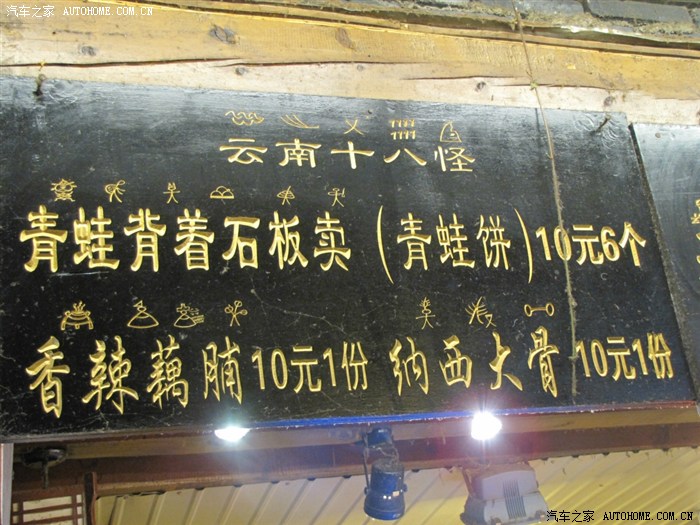 汽车之家 AUTOHOME.COM.CN
云南十八怪
青蛙背着石板卖(青蛙饼)10元6个
香辣藕腩10元1份 纳西大骨10元1份
汽车之家 AUTOHOME.COM.CN